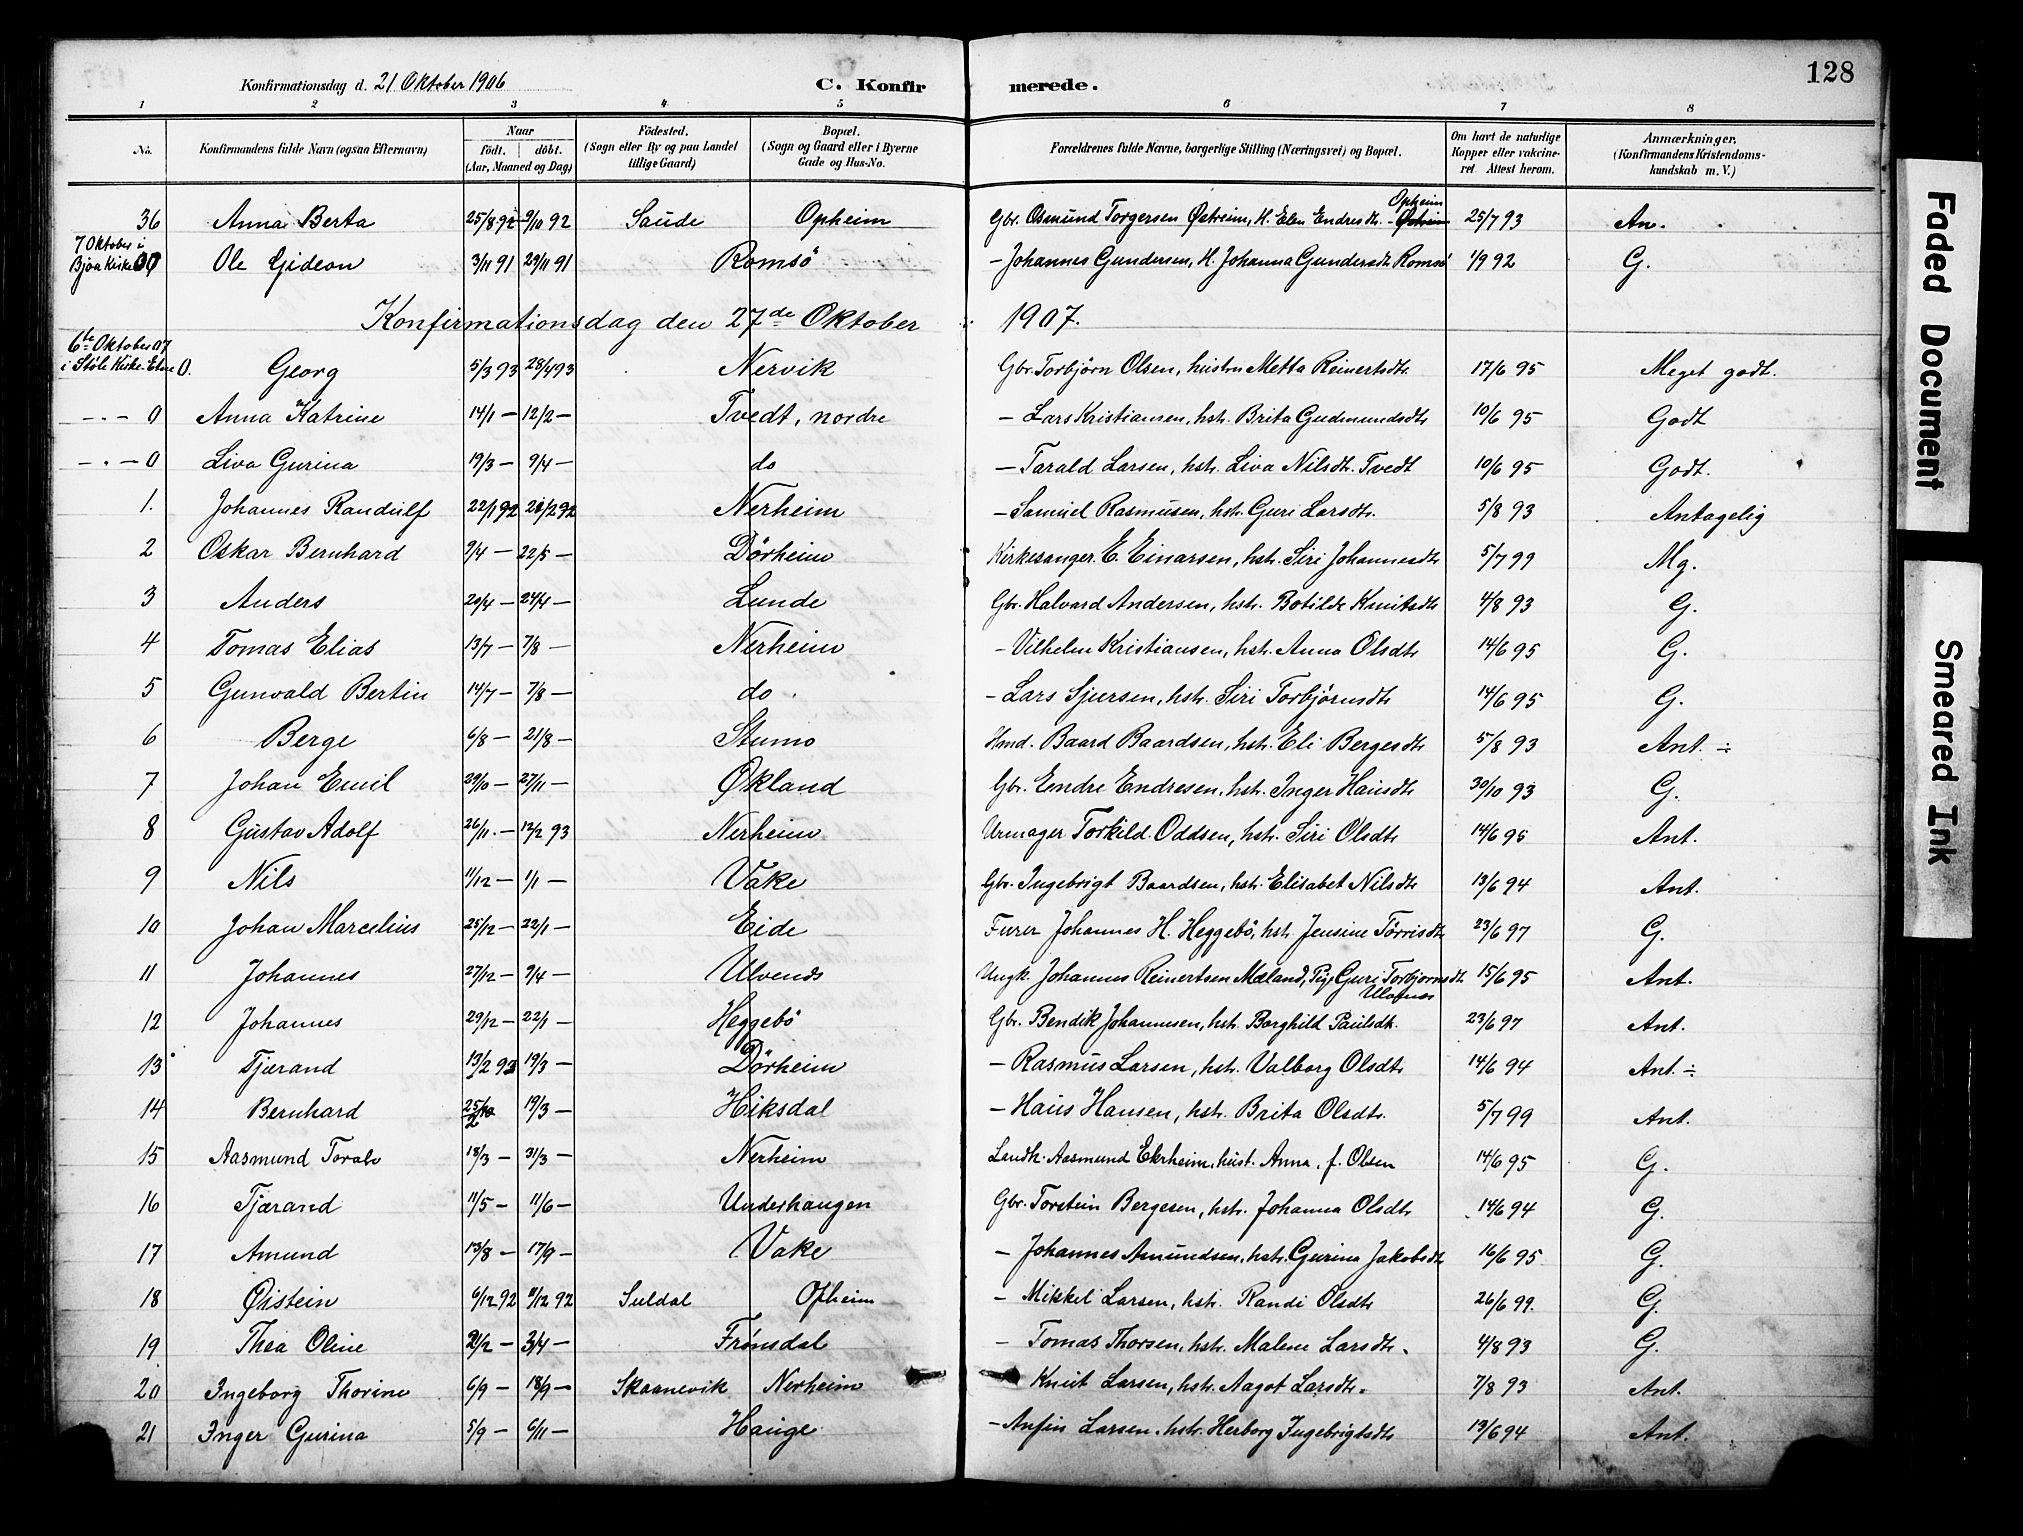 Konfirmationsdag d. 21 Oktober 1906 C. Konfir merede. 128
1 2 3 4 5 6 7 8
No. Konfirmandens fulde Navn (ogsaa Efternavn) Naar født. døbt. (Aar, Maaned og Dag) Fødested. (Sogn eller By og paa Landet tillige Gaard) Bopæl. (Sogn og Gaard eller i Byerne Gade og Hus-No. Forældrenes fulde Navne, borgerlige Stilling (Næringsvei) og Bopæl. Om havt de naturlige Kopper eller vakcineret Attest herom. Anmærkninger, (Konfirmandens Kristendomskundskab m. V.)
36 Anna Berta 25/8 92 9/10 92 Saude Opheim Gbr. Osmund Torgersen Østreim, H. Elen Endresdtr. - Østreim Opheim 25/7 93 An.
7 Oktober i Bjoa Kirke 0 Ole Gideon 3/11 91 29/11 91 Romsö - Johannes Gundersen, H. Johanna Gundersdtr Romsö 1/9 92 G.
Konfirmationsdag den 27de Oktober 1907.
6te Oktober 07 i Støle Kirke. Etne 0. Georg 5/3 93 23/4 93 Nervik Gbr. Torbjörn Olsen, hustru Metta Reinertsdtr. 17/6 95 Meget godt.
- . - 0 Anna Katrine 14/1 - 12/2 - Tvedt, nordre - Lars Kristiansen, hstr. Brita Gudmundsdtr 10/6 95 Godt
- . - 0 Liva Gurina 19/3 - 9/4 - do - Tarald Larsen, hstr. Liva Nilsdtr. Tvedt 10/6 95 Godt.
1. Johannes Randulf 22/1 92 21/2 92 Nerheim - Samuel Rasmusen, hstr. Guri Larsdtr. 5/8 93 Antagelig
2 Oskar Bernhard 9/4 - 22/5 - Dörheim Kirkesanger. E. Einarsen, hstr. Siri Johannesdtr 5/7 99 Mg.
3 Anders 20/4 - 24/4 - Lunde Gbr. Halvard Andersen, hstr. Botilde Knutsdtr 4/8 93 G.
4 Tomas Elias 13/7 - 7/8 - Nerheim - Vilhelm Kristiansen, hstr. Anna Olsdtr 14/6 95 G.
5 Gunvald Bertin 14/7 - 7/8 - do. - Lars Sjursen, hstr. Siri Torbjörnsdtr 14/6 95 G.
6 Berge 6/8 - 21/8 - Stumo Hmd. Baard Baardsen, hstr. Eli Bergesdtr 5/8 93 Ant. ÷
7 Johan Emil 29/10 - 27/11 - Økland Gbr. Endre Endresen, hstr. Inger Hansdtr 30/10 93 G.
8 Gustav Adolf 26/11 - 12/2 93 Nerheim Urmager Torkild Oddsen, hstr. Siri Olsdtr 14/6 95 Ant.
9 Nils 11/12 - 1/1 - Vake Gbr. Ingebrigt Baardsen, hstr. Elisabet Nilsdtr 13/6 94 Ant.
10 Johan Marcelius 25/12 - 22/1 - Eide Furer Johannes H. Heggebö, hstr. Jensine Törrisdtr 23/6 97 G.
11 Johannes 27/12 - 9/4 - Ulvenes Ungk. Johannes Reinertsen Mæland, Pig. Guri Torbjornsdtr. 15/6 95 Ant.
12 Johannes 29/12 - 22/1 - Heggebö Gbr. Bendik Johannesen, hstr. Borghild Paulsdtr. 23/6 97 Ant.
13 Tjærand 13/2 93 19/3 - Dörheim - Rasmus Larsen, hstr. Valborg Olsdtr 14/6 94 Ant. ÷
14 Bernhard 25/2 19/3 - Hiksdal - Hans Hansen, hstr. Brita Olsdtr. 5/7 99 Ant.
15 Aasmund Toralv 18/3 - 31/3 - Nerheim Landh. Aasmund Ekrheim, hust. Anna, f. Olsen 14/6 95 G.
16 Tjærand 11/5 - 11/6 - Underhaugen Gbr. Torstein Bergesen, hstr. Johanna Olsdtr 14/6 94 G.
17 Amund 13/8 - 17/9 - Vake - Johannes Amundsen, hstr. Gurina Jakobsdtr 16/6 95 G.
18 Øistein 6/12 92 11/12 92 Suldal Opheim - Mikkel Larsen, hstr. Randi Olsdtr 26/6 99. G.
19 Thea Oline 21/2 - 3/4 - Frønsdal - Tomas Thorsen, hstr. Malene Larsdtr. 4/8 93 G.
20 Ingeborg Thorine 6/9 - 18/9 - Skaanevik Nerheim Knut Larsen, hstr. Aagot Larsdtr. 7/8 93 Ant.
21 Inger Gurina 5/9 - 6/11 - Hauge - Anfin Larsen, hstr. Herborg Ingebrigtsdtr 13/6 94 Ant.
Faded Document
Smeared Ink